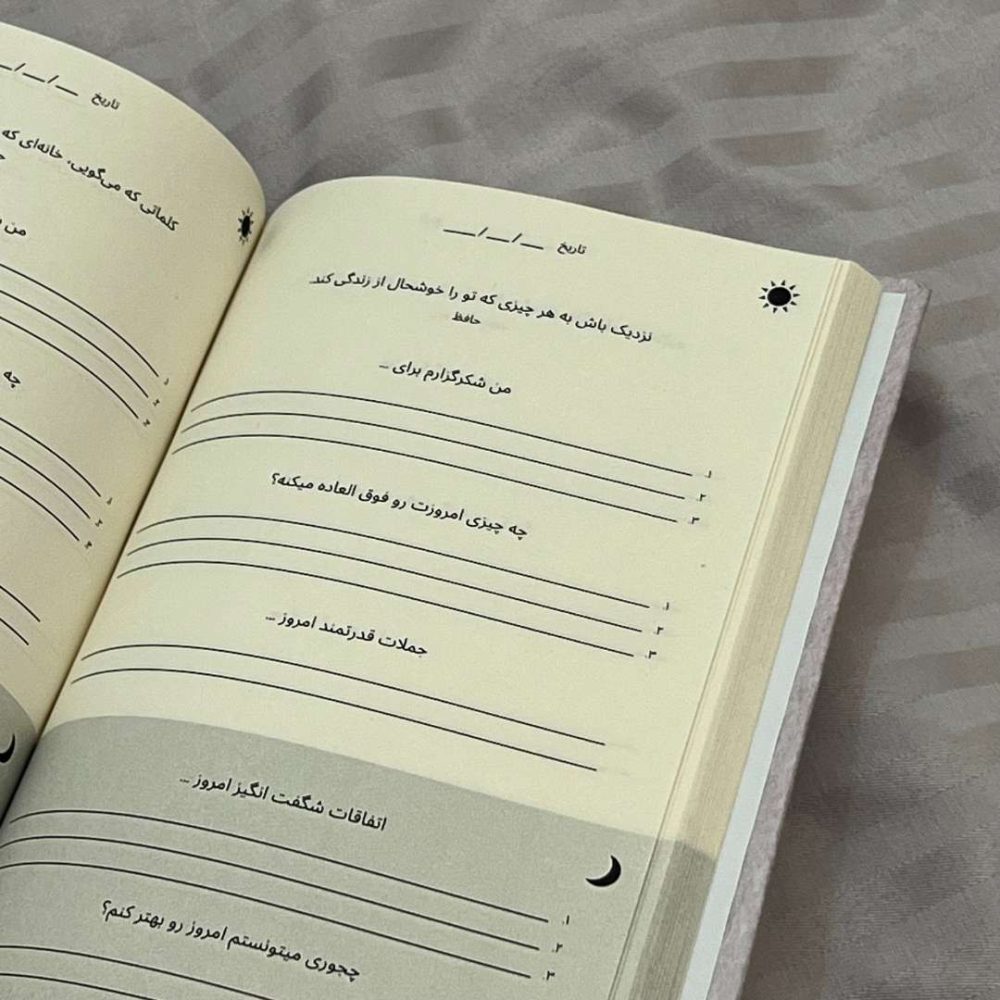 تاریخ __/__/__
نزدیک باش به هر چیزی که تو را خوشحال از زندگی کند
حافظ
من شکرگزارم برای ...
۱.
۲.
۳.
چه چیزی امروزت رو فوق العاده میکنه؟
۱.
۲.
۳.
جملات قدرتمند امروز ...
اتفاقات شگفت انگیز امروز ...
۱.
۲.
۳.
چجوری میتونستم امروز رو بهتر کنم؟
تاریخ __/__/__
کلماتی که می‌گویی، خانه‌ای که
من
۱.
۲.
۳.
چه
۱.
۲.
۳.